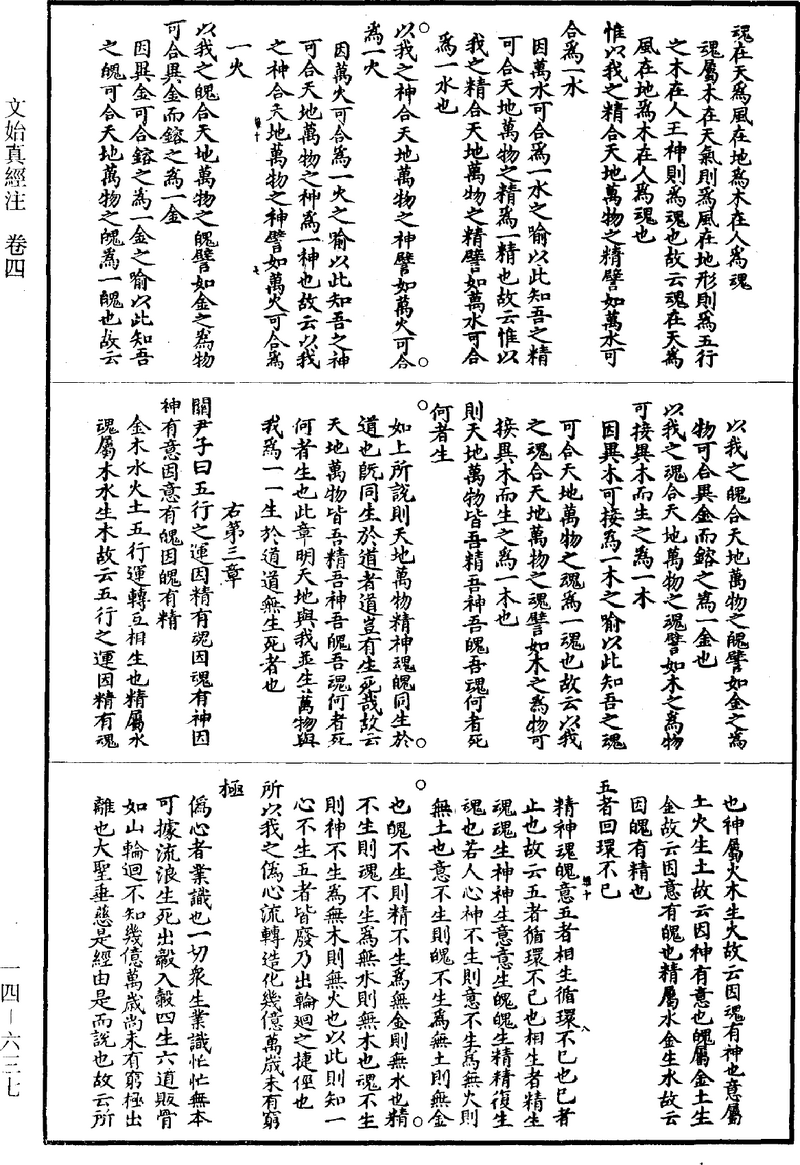 文始真經注　卷四
一四－六三七
魂在天為風在地為木在人為魂
魂屬木在天氣則為風在地形則為五行
之木在人王神則為魂也故云魂在天為
風在地為木在人為魂也
惟以我之精合天地萬物之精譬如萬水可
合為一水
因萬水可合為一水之喻以此知吾之精
可合天地萬物之精為一精也故云惟以
我之精合天地萬物之精譬如萬水可合
為一水也
以我之神合天地萬物之神譬如萬火可合
為一火
因萬火可合為一火之喻以此知吾之神
可合天地萬物之神為一神也故云以我
之神合天地萬物之神譬如萬火可合為
一火
以我之魄合天地萬物之魄譬如金之為物
可合異金而鎔之為一金
因異金可合鎔之為一金之喻以此知吾
之魄可合天地萬物之魄為一魄也故云
以我之魄合天地萬物之魄譬如金之為
物可合異金而鎔之為一金也
以我之魂合天地萬物之魂譬如木之為物
可接異木而生之為一木
因異木可接為一木之喻以此知吾之魂
可合天地萬物之魂為一魂也故云以我
之魂合天地萬物之魂譬如木之為物可
接異木而生之為一木也
則天地萬物皆吾精吾神吾魄吾魂何者死
何者生
如上所說則天地萬物精神魂魄同生於
道也既同生於道者道豈有生死哉故云
天地萬物皆吾精吾神吾魄吾魂何者死
何者生也此章明天地與我並生萬物與
我為一一生於道道無生死者也
右第三章
關尹子曰五行之運因精有魂因魂有神因
神有意因意有魄因魄有精
金木水火土五行運轉互相生也精屬水
魂屬木水生木故云五行之運因精有魂
也神屬火木生火故云因魂有神也意屬
土火生土故云因神有意也魄屬金土生
金故云因意有魄也精屬水金生水故云
因魄有精也
五者回環不已
精神魂魄意五者相生循環不已也已者
止也故云五者循環不已也相生者精生
魂魂生神神生意意生魄魄生精精復生
魂也若人心神不生則意不生為無火則
無土也意不生則魄不生為無土則無金
也魄不生則精不生為無金則無水也精
不生則魂不生為無水則無木也魂不生
則神不生為無木則無火也以此則知一
心不生五者皆廢乃出輪迴之捷徑也
所以我之偽心流轉造化幾億萬歲未有窮
極
偽心者業識也一切眾生業識忙忙無本
可據流浪生死出殼入殼四生六道販骨
如山輪迴不知幾億萬歲尚未有窮極出
離也大聖垂慈是經由是而說也故云所